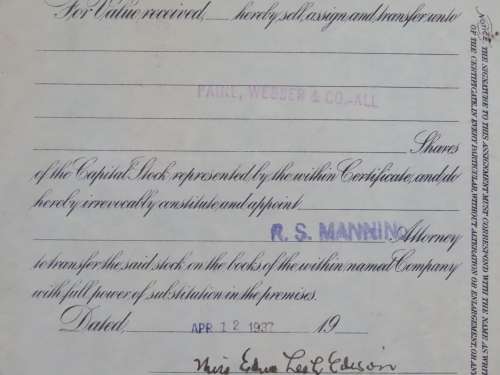 For Value received, hereby sell, assign and transfer unto
PAINE, WEBBER & CO.-ALL
Shares
of the Capital Stock represented by the within Certificate, and do
hereby irrevocably constitute and appoint
R. S. MANNING Attorney
to transfer the said stock on the books of the within named Company
with full power of substitution in the premises.
Dated, APR 12 1937 19
Miss Edna Edison
NOTE THE SIGNATURE TO THIS ASSIGNMENT MUST CORRESPOND WITH THE NAME AS WRIT
OF THE CERTIFICATE, IN EVERY PARTICULAR, WITHOUT ALTERATION OR ENLARGEMENT, OR ANY